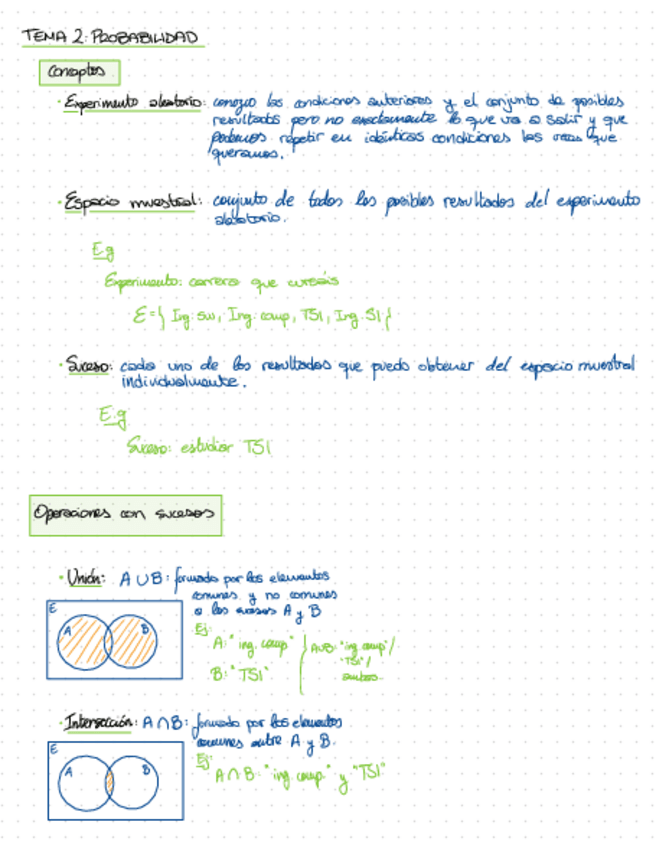 TEMA 2: PROBABILIDAD
Conceptos
· Experimento aleatorio: conozco las condiciones anteriores y el conjunto de posibles
resultados pero no exactamente lo que va a salir y que
podemos repetir en idénticas condiciones las veces que
queramos.
· Espacio muestral: conjunto de todos los posibles resultados del experimento
aleatorio.
E.g
Experimento: carrera que cursáis
E={ Ing. sw, Ing. comp, TSI, Ing. SI}
· Suceso: cada uno de los resultados que puedo obtener del espacio muestral
individualmente.
E.g
Suceso: estudiar TSI
Operaciones con sucesos
· Unión: A ∪ B: formado por los elementos
comunes y no comunes
a los sucesos A y B
E
A B
Ej:
A: "ing. comp"
B: "TSI"
A∪B: "ing. comp"/
"TSI"/
ambos
· Intersección: A ∩ B: formado por los elementos
comunes entre A y B.
E
A B
Ej:
A ∩ B: "ing. comp." y "TSI"